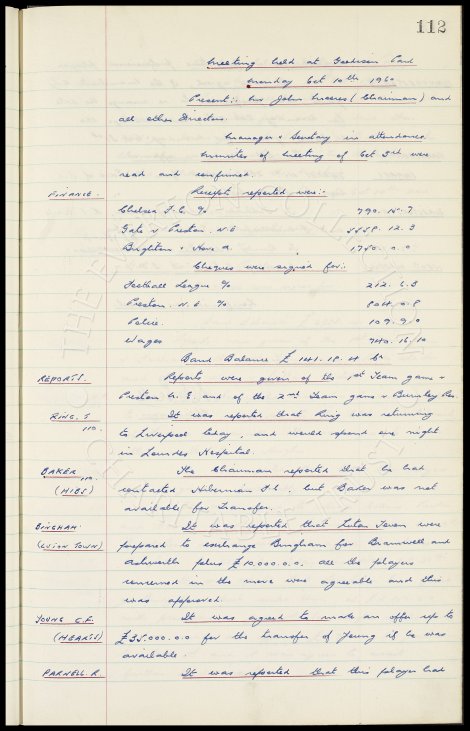 112
Meeting held at Goodison Park
Monday Oct 10th 1960
Present:- Mr John Moores (Chairman) and
all other Directors.
Manager & Secretary in attendance
Minutes of meeting of Oct 3rd were
read and confirmed.
FINANCE. Receipts reported were:-
Chelsea F.C. % 790. 15. 7
Gate v Preston. N.E 5558. 12. 3
Brighton & Hove A. 1750. 0. 0
Cheques were signed for:-
Football League % 212. 6. 3
Preston. N.E. %
Police. 109. 9. 0
Wages 740. 16. 10
Bank Balance £ 141. 18. 4 Cr
REPORTS. Reports were given of the 1st Team game v
Preston N.E. and of the 2nd Team game v Burnley Res.
RING. T It was reported that Ring was returning
110. to Liverpool today, and would spend one night
in Lourdes Hospital.
BAKER The Chairman reported that he had
(HIBS) contacted Hibernian F.C. but Baker was not
available for transfer.
BINGHAM It was reported that Luton Town were
(LUTON TOWN) prepared to exchange Bingham for Bramwell and
Ashworth plus £10,000.0.0. All the players
concerned in the move were agreeable and this
was approved.
YOUNG G.F. It was agreed to make an offer up to
(HEARTS) £35,000.0.0 for the transfer of Young if he was
available.
PARNELL. R. It was reported that this player had